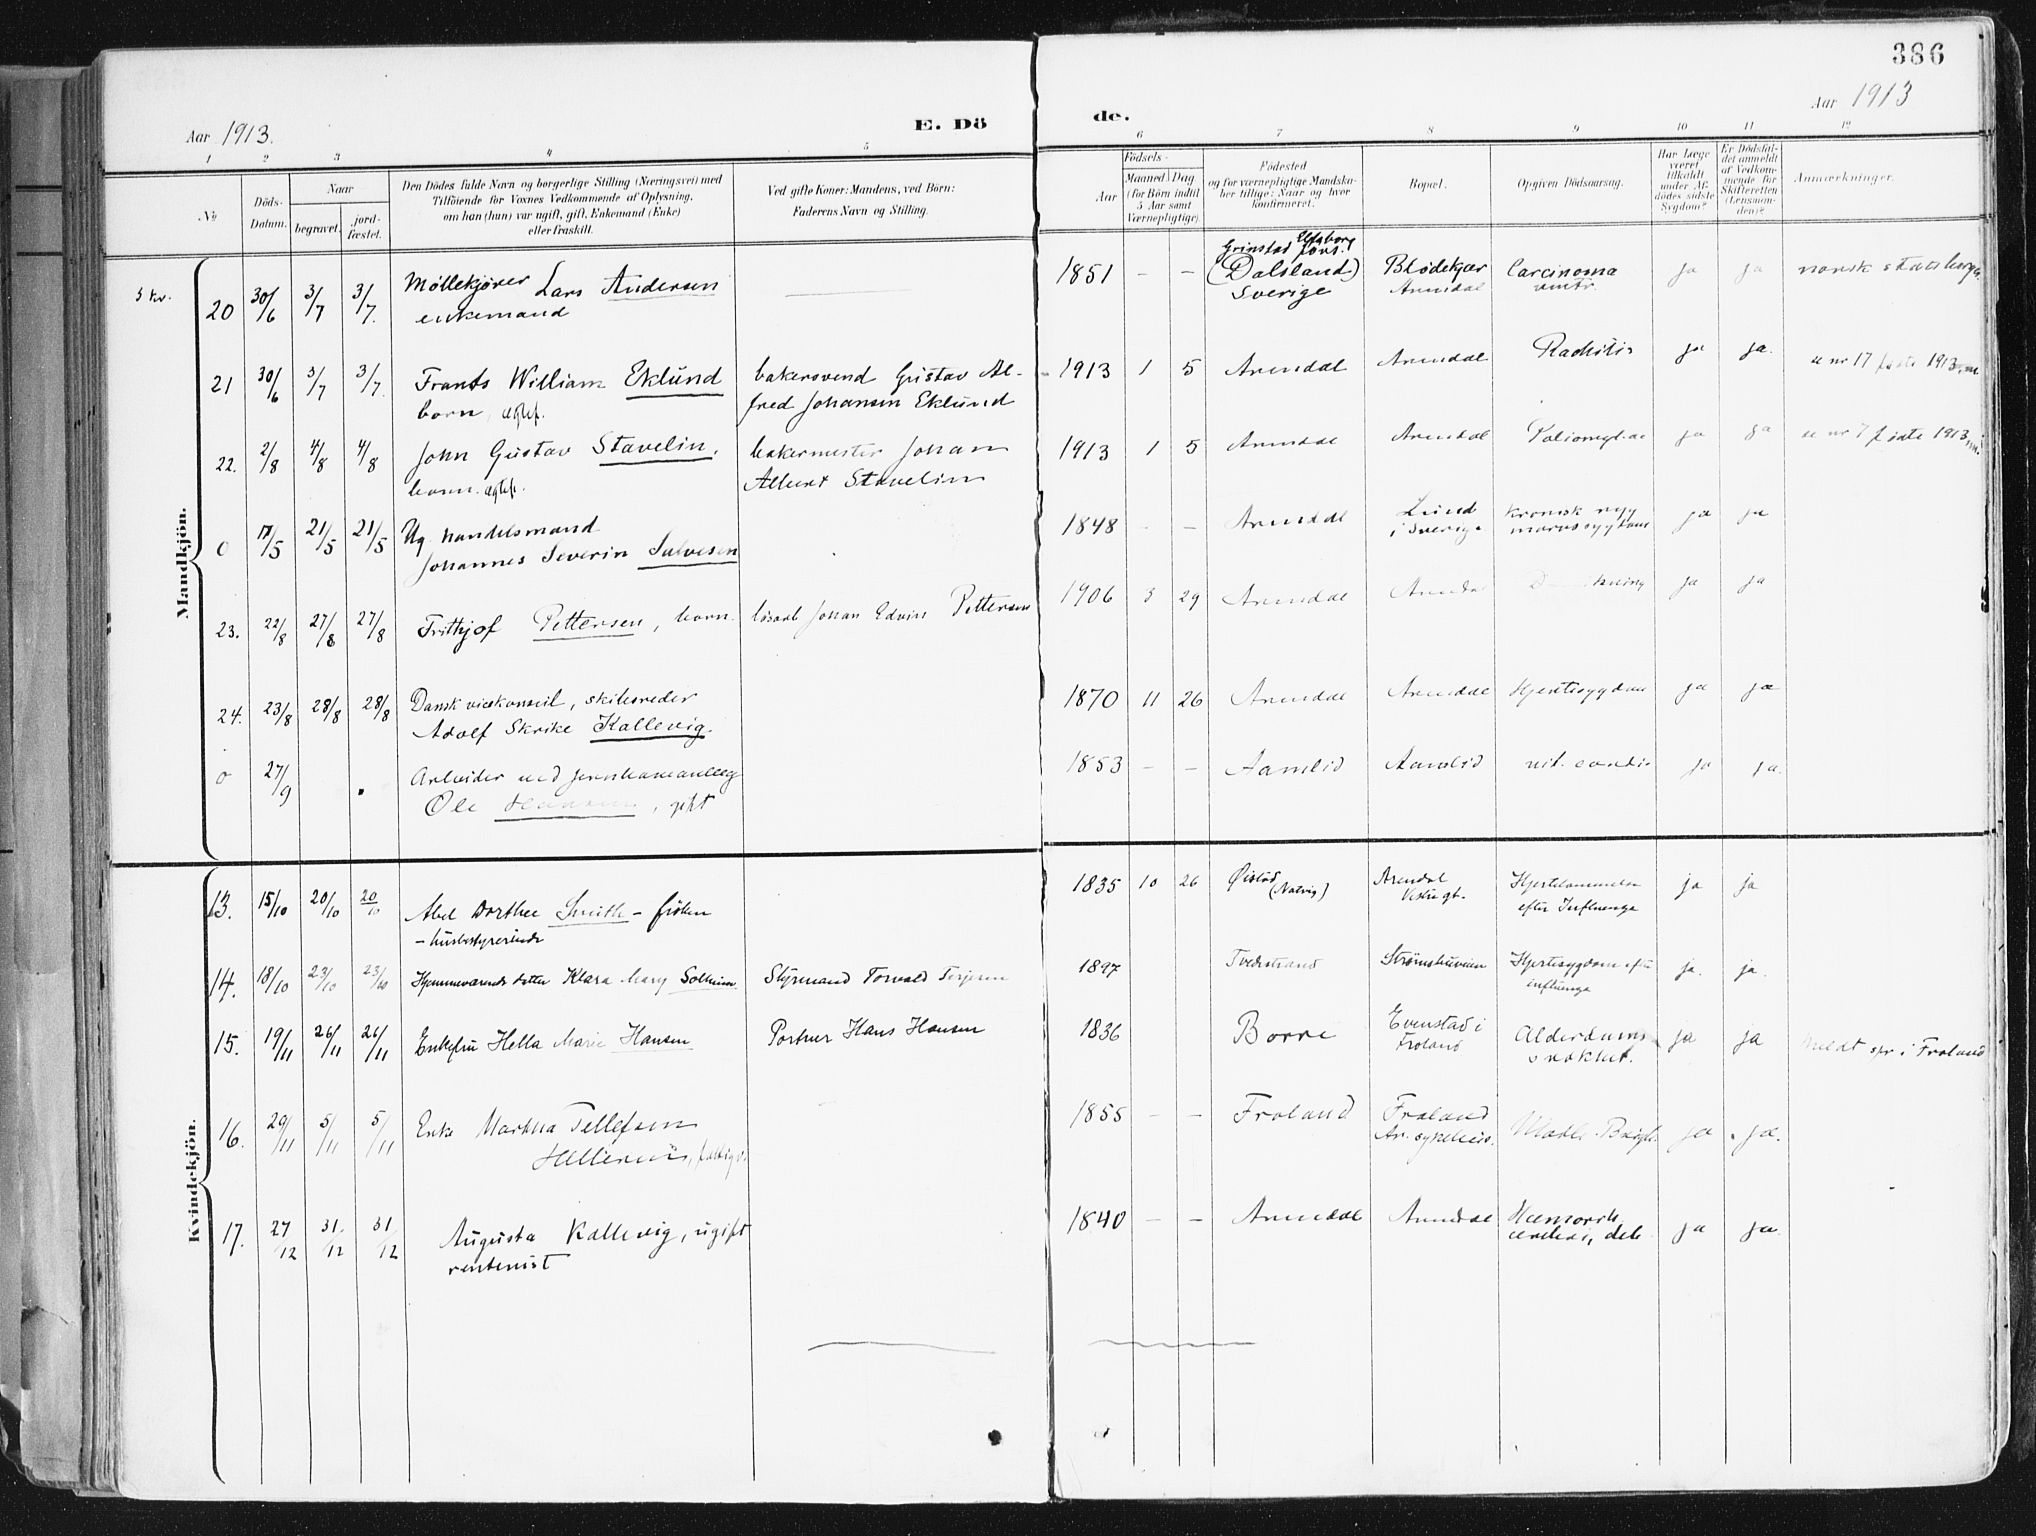 386
Aar 1913.
E. Dö
de.
Aar 1913
1 2 3 4 5 6 7 8 9 10 11 12
No
Döds-
Datum.
Naar
begravet.
jord-
fæstet.
Den Dödes fulde Navn og borgerlige Stilling (Næringsvei) med
Tilföiende for Voxnes Vedkommende af Oplysning,
om han (hun) var ugift, gift, Enkemand (Enke)
eller fraskilt.
Ved gifte Koner: Mandens, ved Börn:
Faderens Navn og Stilling.
Födsels-
Aar
Maaned Dag
(for Börn indtil
5 Aar samt
Værnepligtige).
Födested
og for værnepligtige Mandska-
ber tillige: Naar og hvor
konfirmeret.
Bopæl.
Opgiven Dödsaarsag.
Har Læge
været
tilkaldt
under Af-
dödes sidste
Sygdom?
Er Dödsfal-
det anmeldt
af Vedkom-
mende for
Skifteretten
(Lensman-
den)?
Anmærkninger.
Mandkjön.
5 kv.
20 30/6 3/7 3/7. Møllekjører Lars Andersen
enkemand
1851 - - Grinstad Elfsborg
(Dalsland)
Sverige
Blødekjær
Arendal
Carcinoma
ventr.
ja ja norsk statsborger
21 30/6 3/7 3/7. Frants William Eklund
barn, ægtef.
bakersvend Gustav Al-
fred Johansen Eklund
1913 1 5 Arendal Arendal Rachitis ja ja. se nr 17 fødte 1913
22. 2/8 4/8 4/8 John Gustav Stavelin,
barn. ægtef.
bakermester Johan
Albert Stavelin
1913 1 5 Arendal Arendal ja ja se nr 7 fødte 1913
0 17/5 21/5 21/5 Ug. handelsmand
Johannes Severin Salvesen
1848 - - Arendal Lund
i Sverige
kronisk ryg
marvssygdom
ja ja
23. 22/8 27/8 27/8 Frithjof Pettersen, barn.
løsarb Johan Edvin Pettersen
1906 3 29 Arendal Arendal ja ja
24. 23/8 28/8 28/8 Dansk vicekonsul, skibsreder
Adolf Skrike Kallevig.
1870 11 26 Arendal Arendal Hjertesygdom ja ja
0 27/9 Arbeider ved jernbaneanlæg
Ole Hansen, gift
1853 - - Aamlid Aamlid vit. cordis ja ja.
Kvindekjön.
13. 15/10 20/10 20/10 Abel Dorthee Smith - frøken
- husbestyrerinde
1835 10 26 Øistad
(Natvig)
Arendal
Vestregt.
Hjertelammelse
efter Influenza
ja ja
14. 18/10 23/10 23/10 Hjemmeværende datter Klara Mary Solheim.
Styrmand Torvald Terjesen
1897 Tvedestrand Strømsbuveien Hjertesygdom efter
influenza
ja. ja.
15. 19/11 26/11 26/11 Enkefru Hella Marie Hansen
Portner Hans Hansen
1836 Borre Evenstad i
Froland
Alderdoms
svakhet.
ja ja meldt spr i Froland
16. 29/11 5/11 5/11 Enke Martha Tellefsen
1855 - - Froland Froland
Ar. sykehus.
ja ja.
17. 27/12 31/12 31/12 Augusta Kallevig, ugift
rentenist
1840 - - Arendal Arendal Hæmorrh.
cerebri,
ja ja.